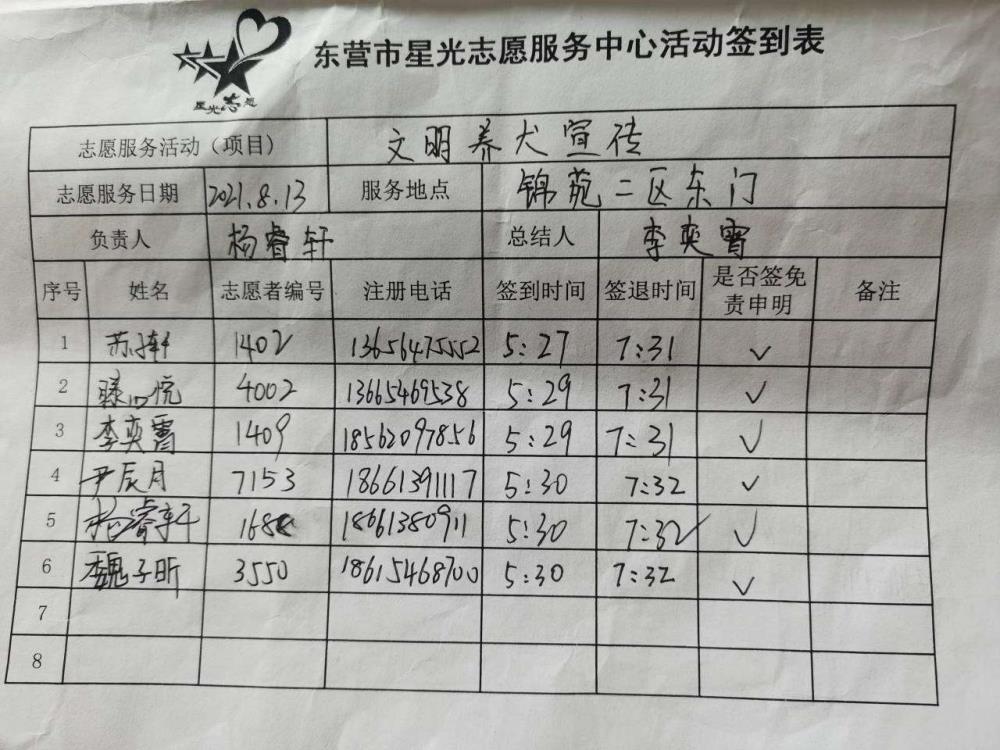 星光志愿
东营市星光志愿服务中心活动签到表
志愿服务活动（项目） 文明养犬宣传
志愿服务日期 2021.8.13 服务地点 锦苑二区东门
负责人 杨睿轩 总结人 李奕霄
序号 姓名 志愿者编号 注册电话 签到时间 签退时间 是否签免责申明 备注
1 苏轩 1402 13656475552 5:27 7:31 ✓
2 滕心悦 4002 13665469538 5:29 7:31 ✓
3 李奕霄 1409 18562097856 5:29 7:31 ✓
4 尹辰月 7153 18661391117 5:30 7:32 ✓
5 杨睿轩 1688 18661380911 5:30 7:32 ✓
6 魏子昕 3550 18615468700 5:30 7:32 ✓
7
8